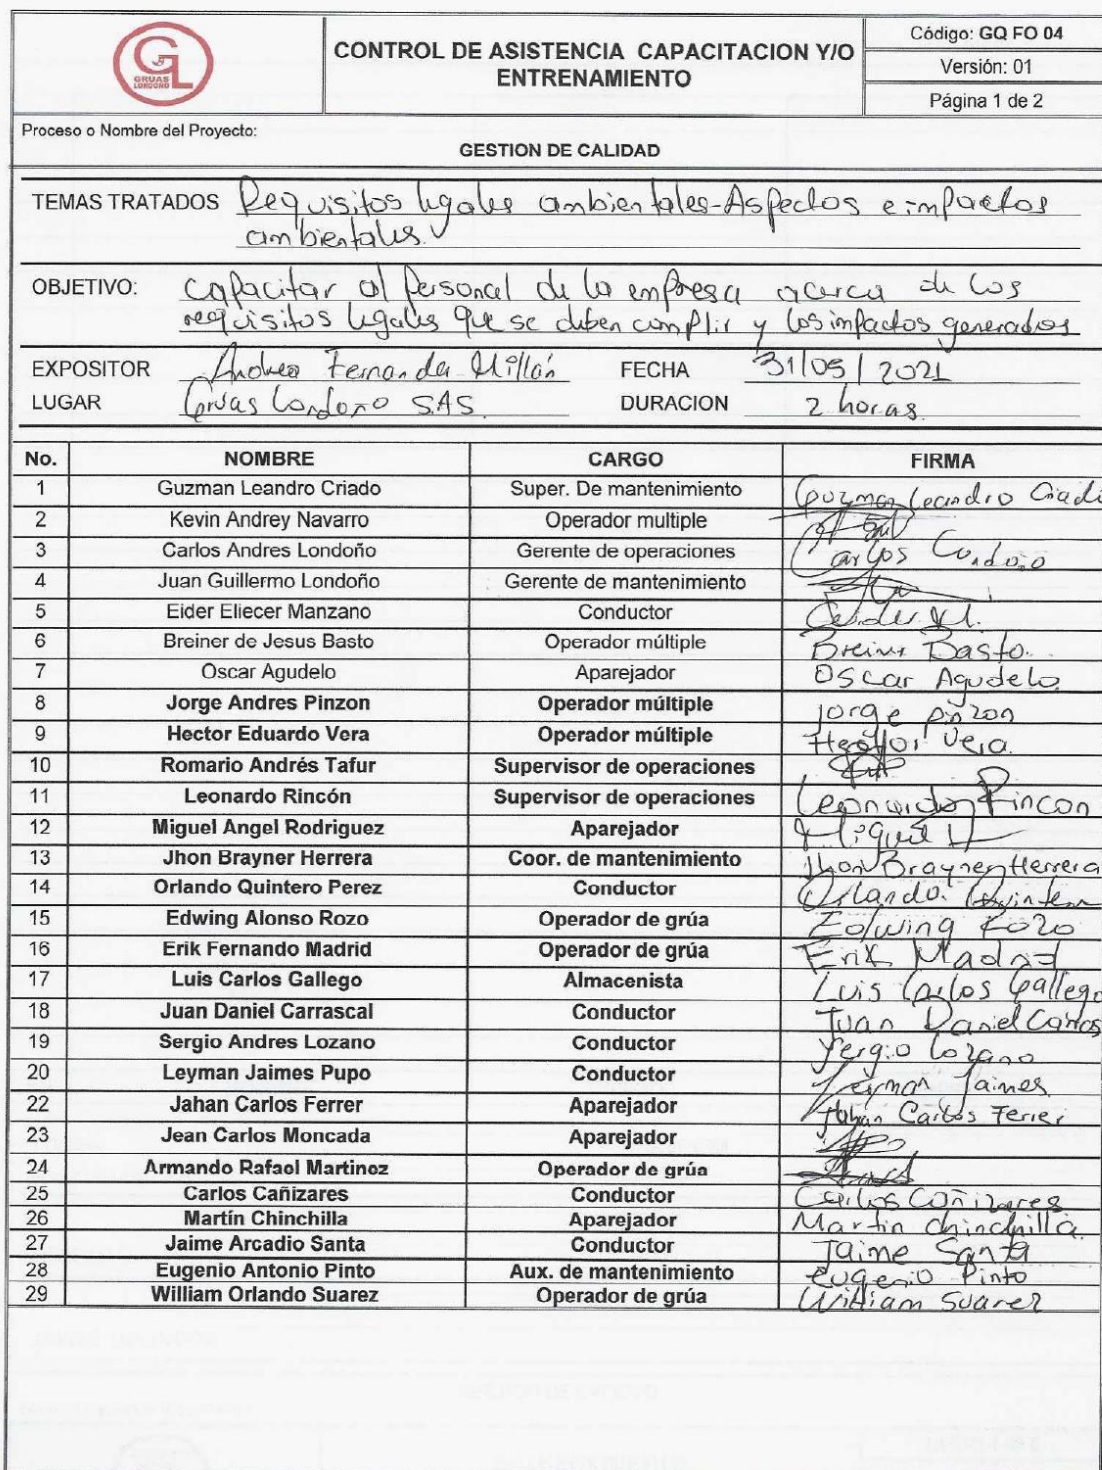 GL
GRUAS
LONDOÑO
CONTROL DE ASISTENCIA CAPACITACION Y/O
ENTRENAMIENTO
Código: GQ FO 04
Versión: 01
Página 1 de 2
Proceso o Nombre del Proyecto:
GESTION DE CALIDAD
TEMAS TRATADOS Requisitos legales ambientales-Aspectos e impactos
ambientales.
OBJETIVO: Capacitar al personal de la empresa acerca de los
requisitos legales que se deben cumplir y los impactos generados
EXPOSITOR Andrea Fernanda Millán FECHA 31/05/2021
LUGAR Gruas Londoño SAS. DURACION 2 horas.
No. NOMBRE CARGO FIRMA
1 Guzman Leandro Criado Super. De mantenimiento Guzman Leandro Criad
2 Kevin Andrey Navarro Operador multiple
3 Carlos Andres Londoño Gerente de operaciones Carlos Londoño
4 Juan Guillermo Londoño Gerente de mantenimiento
5 Eider Eliecer Manzano Conductor
6 Breiner de Jesus Basto Operador múltiple Breiner Basto.
7 Oscar Agudelo Aparejador Oscar Agudelo
8 Jorge Andres Pinzon Operador múltiple jorge pinzon
9 Hector Eduardo Vera Operador múltiple Hector Vera.
10 Romario Andrés Tafur Supervisor de operaciones
11 Leonardo Rincón Supervisor de operaciones Leonardo Rincon
12 Miguel Angel Rodriguez Aparejador Miguel
13 Jhon Brayner Herrera Coor. de mantenimiento Jhon Brayner Herrera
14 Orlando Quintero Perez Conductor Orlando. Quintero
15 Edwing Alonso Rozo Operador de grúa Edwing Rozo
16 Erik Fernando Madrid Operador de grúa Erik Madrid
17 Luis Carlos Gallego Almacenista Luis Carlos Gallego
18 Juan Daniel Carrascal Conductor Juan Daniel Carras
19 Sergio Andres Lozano Conductor Sergio Lozano
20 Leyman Jaimes Pupo Conductor Leyman Jaimes
22 Jahan Carlos Ferrer Aparejador Jahan Carlos Ferrer
23 Jean Carlos Moncada Aparejador
24 Armando Rafael Martinez Operador de grúa
25 Carlos Cañizares Conductor Carlos Cañizares
26 Martín Chinchilla Aparejador Martin chinchilla.
27 Jaime Arcadio Santa Conductor Jaime Santa
28 Eugenio Antonio Pinto Aux. de mantenimiento eugenio Pinto
29 William Orlando Suarez Operador de grúa William Suarez